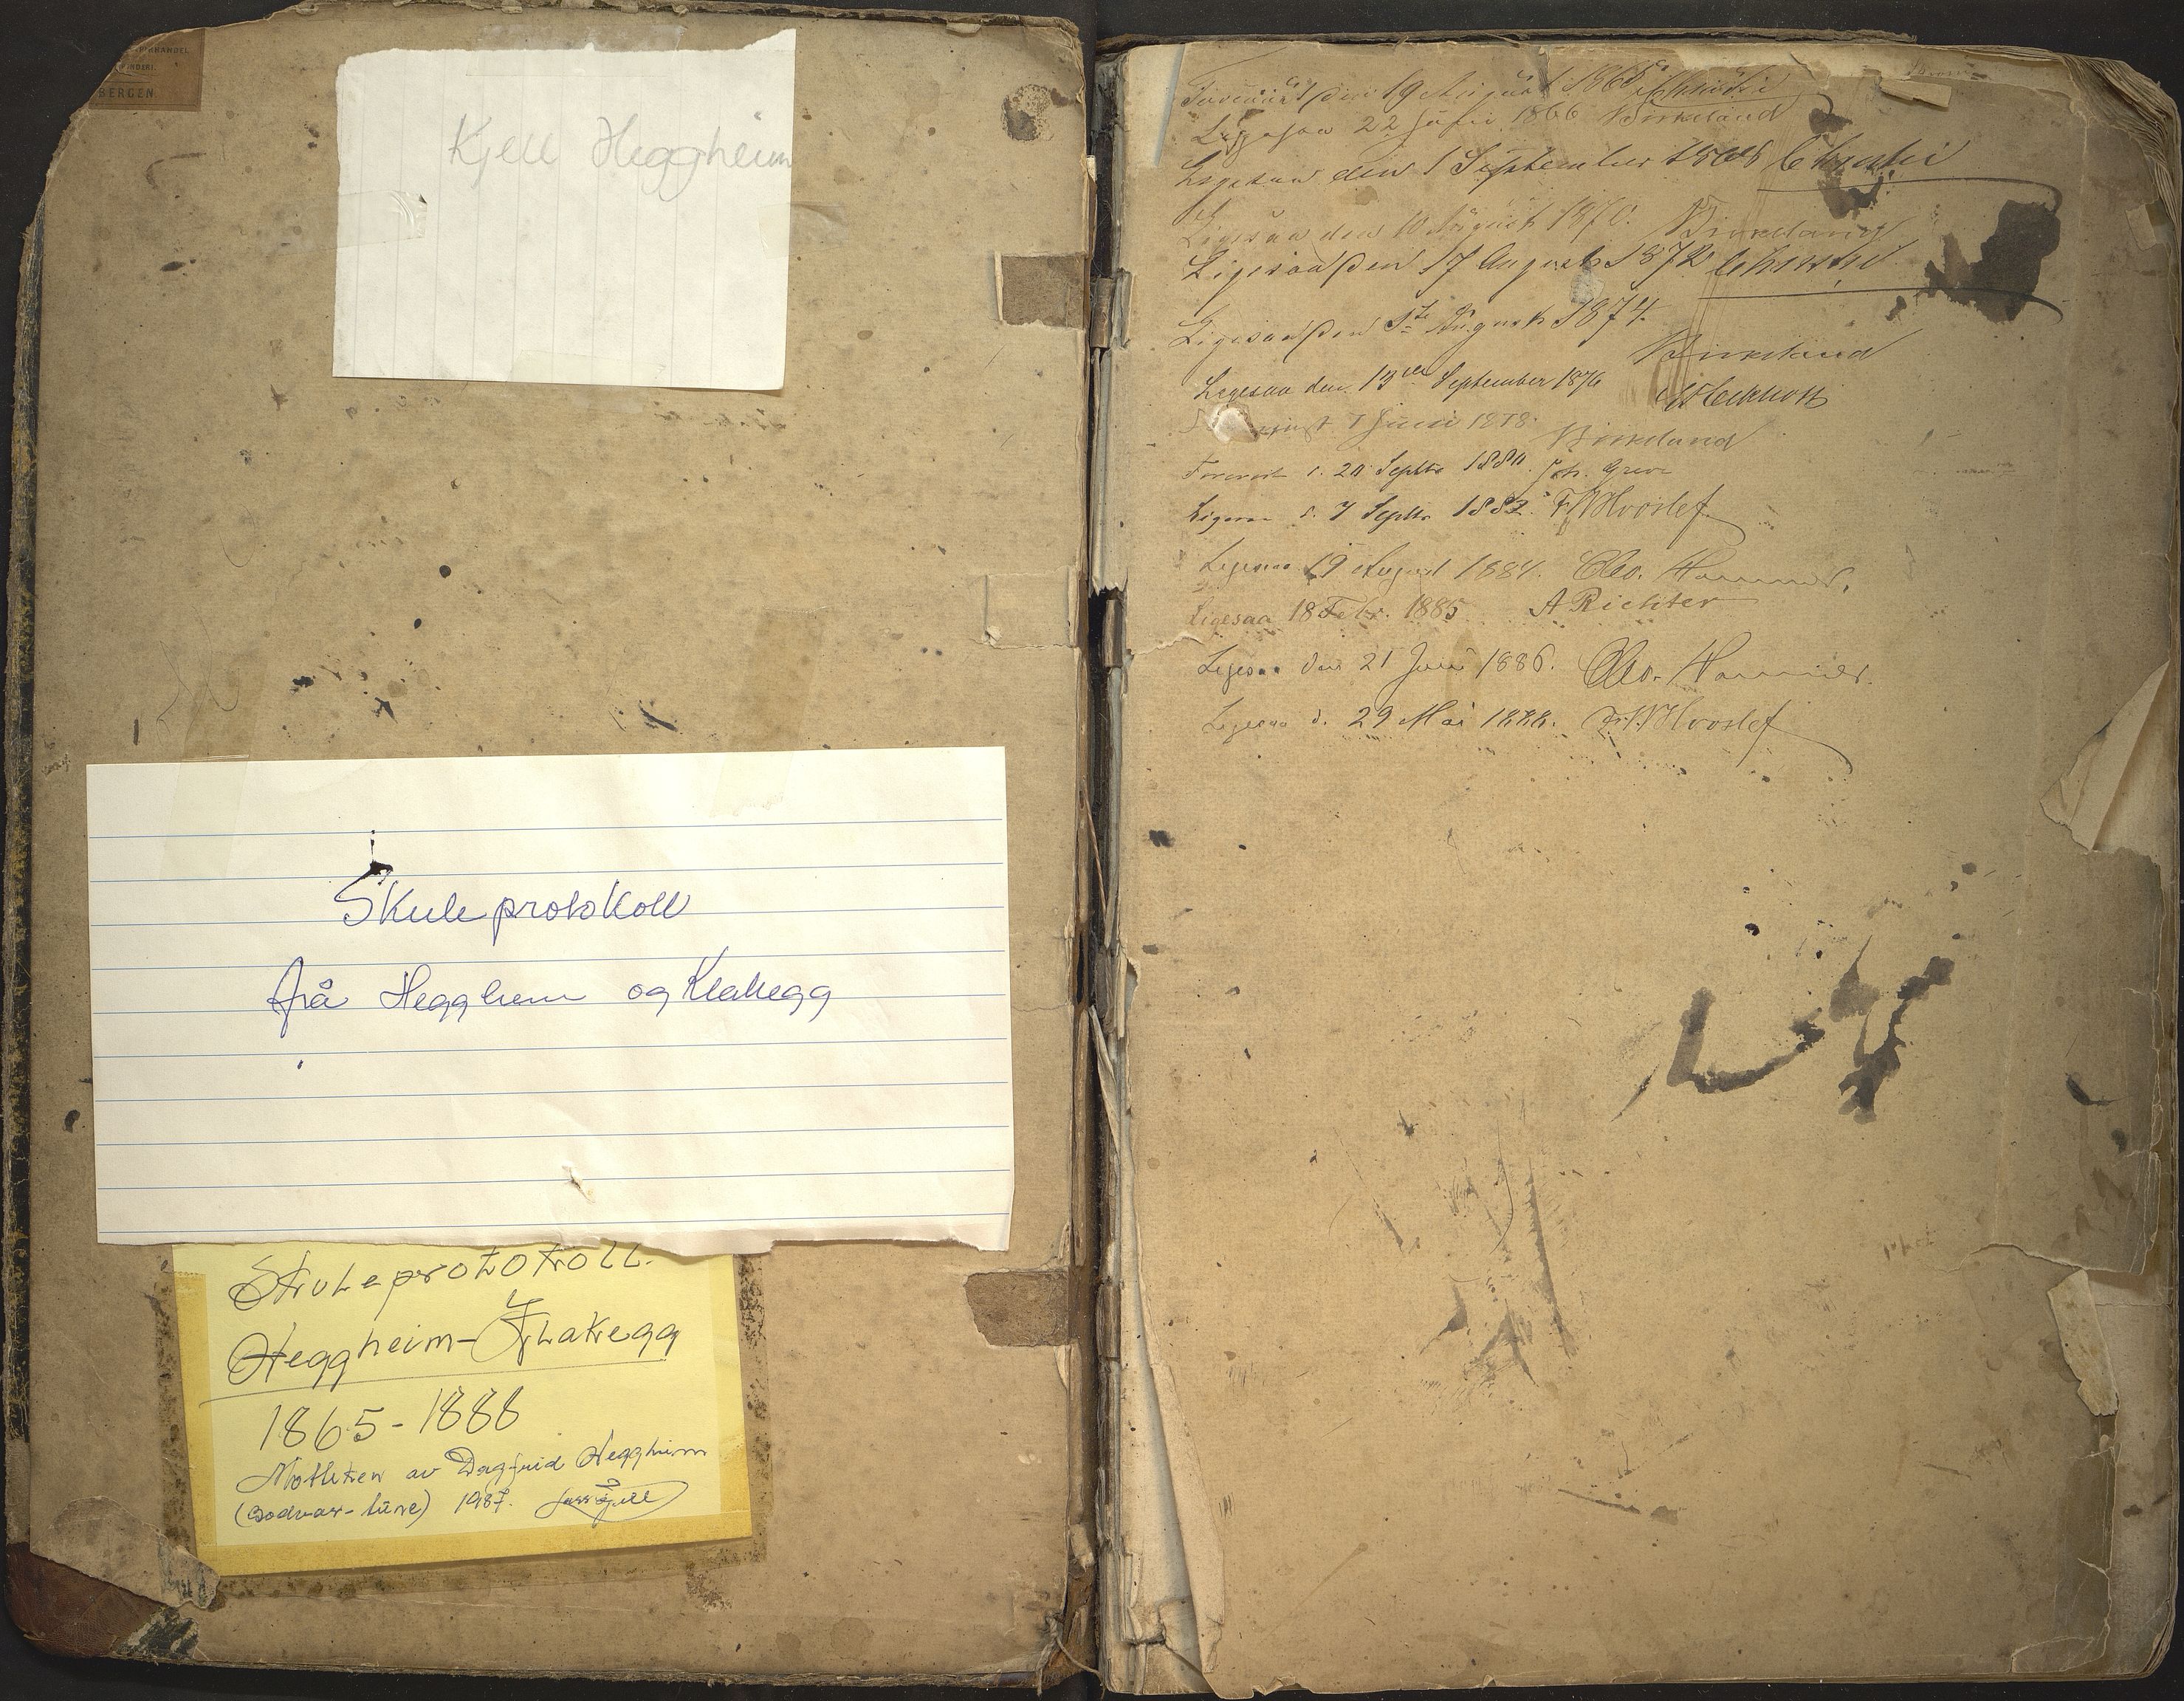 BERGEN
Kjell Heggheim
Skuleprotokoll
frå Heggheim og Klakegg
Skuleprotokoll.
Heggheim-Klakegg
1865-1888
Mottken av Dagfrid Heggheim
(Bodvar-tune) 1987.
Foreviist den 19 August 1865 Christie
Ligesaa 22 Juni 1866 Birkeland
Ligesaa den 1 September 1868 Christie
Ligesaa den 10 August 1870. Birkeland
Ligesaa den 17 August 1872 Christie
Ligesaa den 1te August 1874.
Birkeland
Ligesaa den 13de September 1876
7 Juni 1878. Birkeland
Forevist d. 20 Septbr 1880. Joh. Greve
Ligesaa d. 7 Septbr 1882. Hvoslef
Ligesaa 19 August 1884. Chr. Hammer.
Ligesaa 18 Febr. 1885 A Richter
Ligesaa den 21 Juni 1886. Chr. Hammer.
Ligesaa d. 29 Mai 1888. Hvoslef